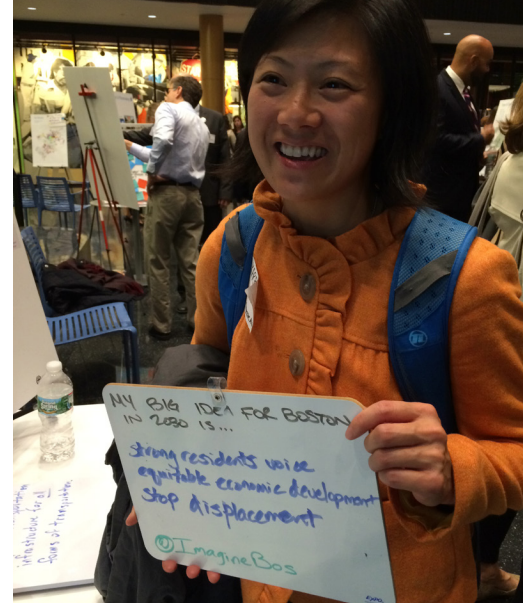 MY BIG IDEA FOR BOSTON
IN 2030 IS...
strong residents voice
equitable economic development
stop displacement
@ImagineBos
EXPO
infrastructure for all
forms of transportation